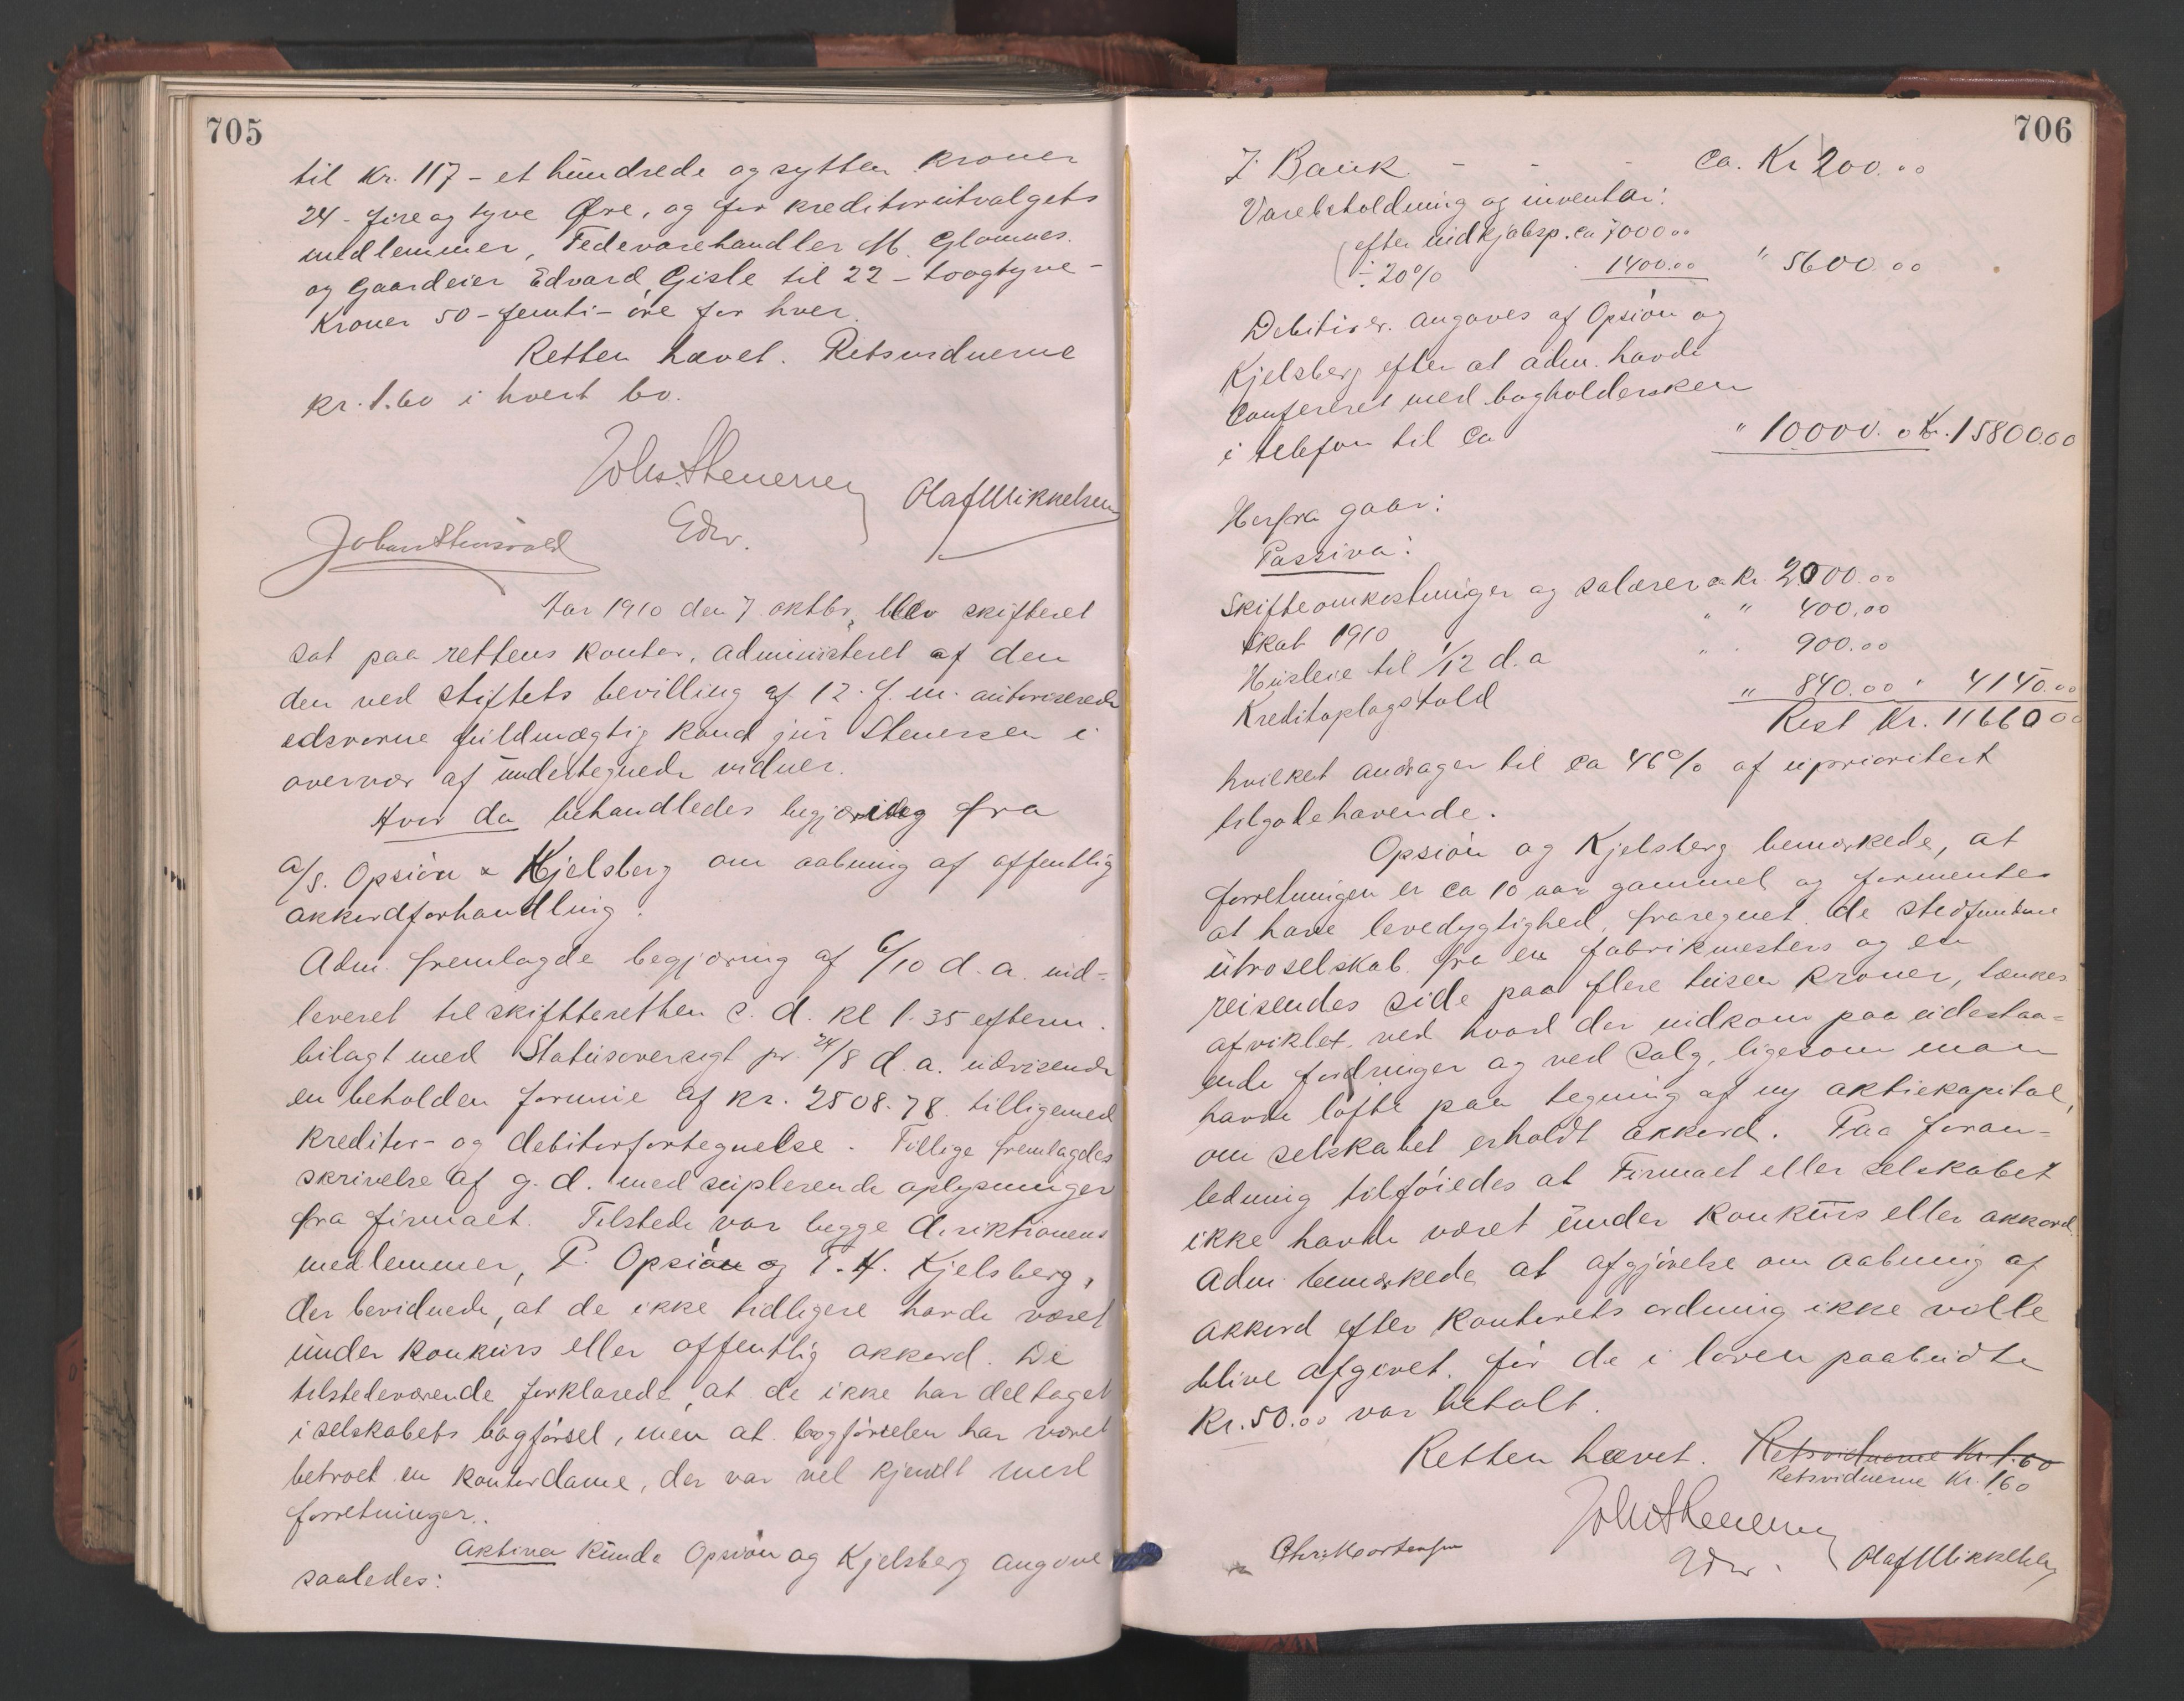 705
til Kr. 117 - et hundrede og sytten kroner
24 - fire og tyve Øre, og for kreditorutvalgets
medlemmer, Fedevarehandler M. Glomnes.
og Gaardeier Edvard Gisle til 22 - toogtyve -
Kroner 50 - femti - øre for hver.
Retten hævet. Retsvidnerne
kr. 1.60 i hvert bo.
Johs. Stenersen Olaf Mikkelsen
Edsv.
Aar 1910 den 7. oktbr, blev skifteret
sat paa rettens kontor, administreret af den
den ved stiftets bevilling af 12. f. m. autoriserede
edsvorne fuldmægtig kand jur Stenersen i
overvær af undertegnede vidner.
Hvor da behandledes begjæring fra
a/s. Opsiøn & Kjelsberg om aabning af offentlig
akkordforhandling.
Adm. fremlagde begjæring af 6/10 d. a. ind-
leveret til skifteretten s. d. kl 1.35 efterm.
bilagt med Statusoversigt pr. 24/8 d. a. udvisende
en beholden formue af kr. 2508.78. tilligemed
kreditor- og debitorfortegnelse. Tillige fremlagdes
skrivelse af g. d. med suplerende oplysninger
fra firmaet. Tilstede var begge direktionens
medlemmer, P. Opsiøn og T. H. Kjelsberg,
der bevidnede, at de ikke tidligere havde været
under konkurs eller offentlig akkord. De
tilstedeværende forklarede, at de ikke har deltaget
i selskabets bogførsel, men at bogførselen har været
betroet en kontordame, der var vel kjendt med
forretninger.
Aktiva kunde Opsiøn og Kjelsberg angive
saaledes:
706
I Bank - - - ca. Kr 200.00
Varebeholdning og inventar:
efter indkjøbsp. ca 7000.00
÷ 20% 1400.00 " 5600.00
Debitorer. angaves af Opsiøn og
Kjelsberg efter at adm. havde
confereret med bogholdersken
i telefon til ca " 10000.00 Kr. 15800.00
Herfra gaar:
Passiva:
Skifteomkostninger og salærer ca Kr. 2000.00
Skat 1910 " " 400.00
Husleie til 1/12 d. a " " 900.00
Kreditoplagstold " 840.00 " 4140.00
Rest Kr. 11660.00
hvilket andrager til ca 46% af uprioritert
tilgodehavende.
Opsiøn og Kjelsberg bemærkede, at
forretningen er ca 10 aar gammel og formentes
at have levedygtighed, fraregnet de stedfundne
utroselskab fra en fabrikmesters og en
reisendes side paa flere tusen kroner, tænkes
afviklet ved hvad der indkom paa udestaa-
ende fordringer og ved salg, ligesom man
havde løfte paa tegning af ny aktiekapital,
om selskabet erholdt akkord. Paa foran-
ledning tilføiedes at Firmaet eller selskabet
ikke havde været under konkurs eller akkord.
Adm. bemærkede at afgjørelse om aabning af
akkord efter kontorets ordning ikke vilde
blive afgivet, før de i loven paabudte
Kr. 50.00 var betalt.
Retten hævet. Retsvidnerne Kr. 1.60
Retsvidnerne Kr. 1.60
Johs Stenersen
Chr. Mortensen Edsv. Olaf Mikkelsen